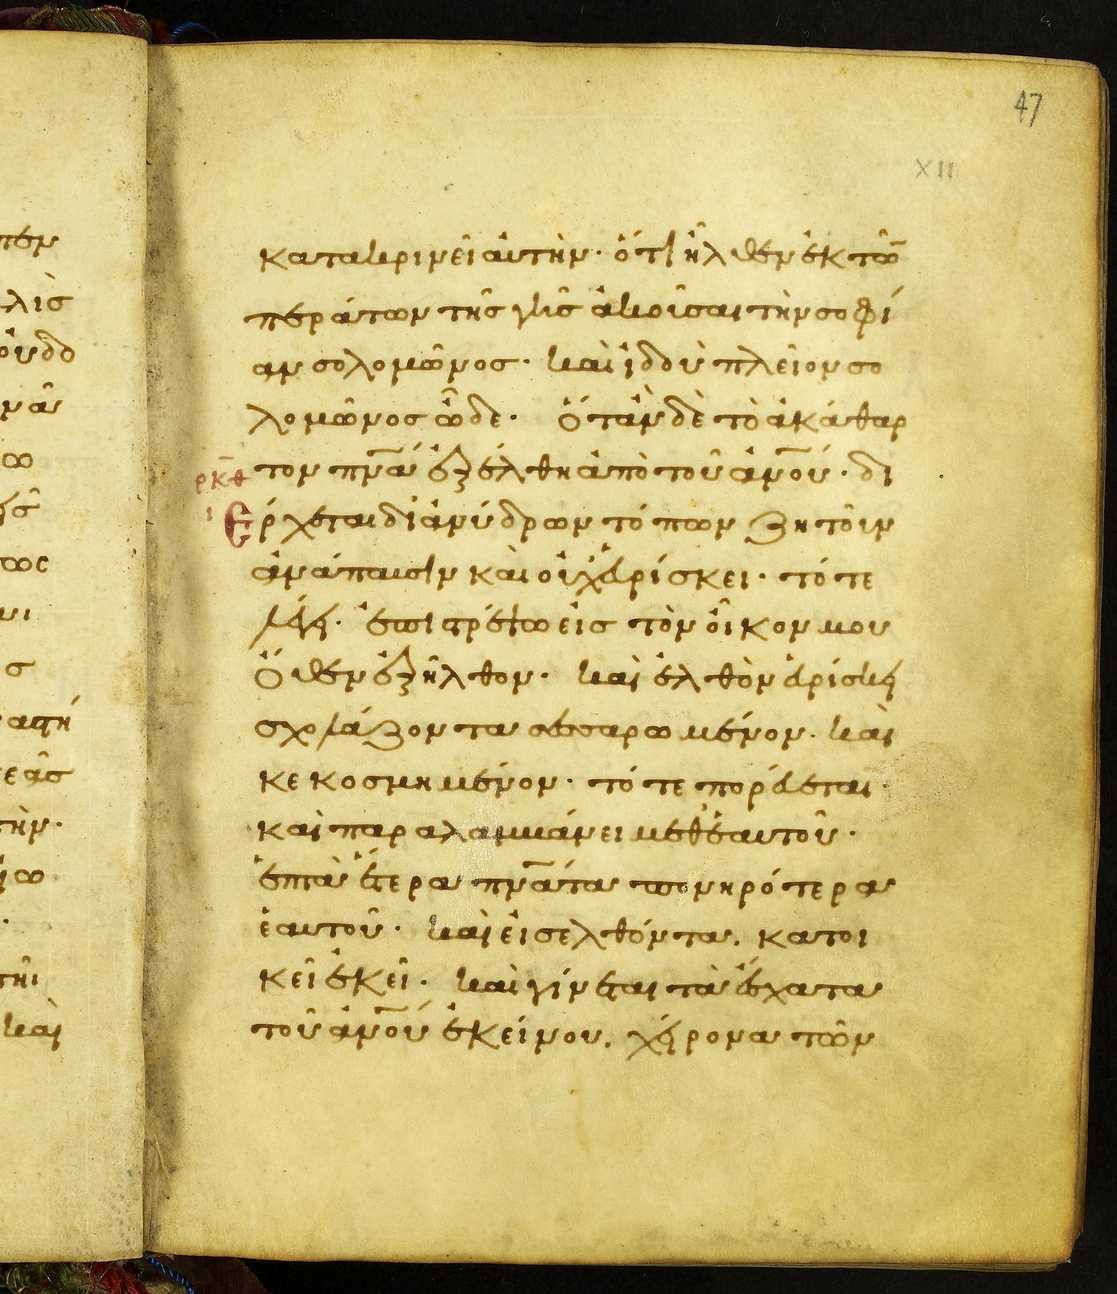 47
XII
κατακρινεῖ αὐτὴν· ὅτι ἦλθεν ἐκ τῶ̅
περάτων τῆς γῆς ἀκοῦσαι τὴν σοφί
αν σολομῶνος· καὶ ἰδοὺ πλεῖον σο
λομῶνος ὧδε· Ὅτἂν δὲ τὸ ἀκάθαρ
ρκθ τον πν̅α ἐξέλθη ἀπὸ τοῦ ἀν̅ου· δι
ι Ἐρχεται δι ἀνύδρων τόπων ζητοῦν
ἀνάπαυσιν καὶ οὐχ εὑρίσκει· τότε
λέγει· ἐπιστρέψω εἰς τὸν οἶκον μου
Ὅθεν ἐξῆλθον· καὶ ἐλθὸν εὑρίσκει
σχολάζοντα σεσαρωμένον. καὶ
κεκοσμημένον· τότε πορεύεται·
καὶ παραλαμβάνει μεθ ἑαυτοῦ·
ἑπτὰ ἕτερα πν̅ατα πονηρότερα
ἑαυτοῦ· καὶ εἰσελθόντα. κατοι
κεῖ ἐκεῖ· καὶ γίνεται τὰ ἔσχατα
τοῦ ἀν̅ου ἐκείνου. χείρονα τῶν